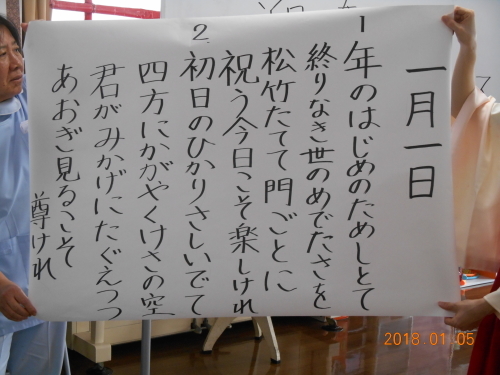 一月一日
1 年のはじめのためしとて
終りなき世のめでたさを
松竹たてて門ごとに
祝う今日こそ楽しけれ
2 初日のひかりさしいでて
四方にかがやくけさの空
君がみかげにたぐえつつ
あおぎ見るこそ
尊けれ
2018.01.05